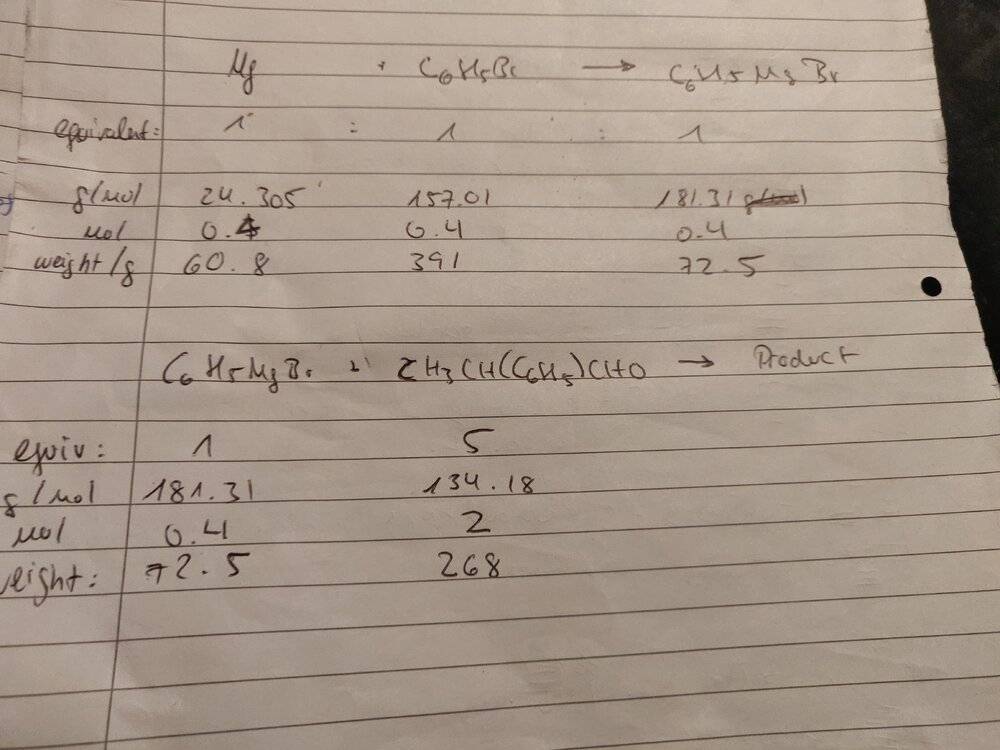 Mg + C6H5Br → C6H5MgBr
equivalent: 1 : 1 : 1
g/mol 24.305 157.01 181.31
mol 0.4 0.4 0.4
weight/g 60.8 391 72.5
C6H5MgBr + CH3CH(C6H5)CHO → Product
equiv: 1 5
g/mol 181.31 134.18
mol 0.4 2
weight: 72.5 268